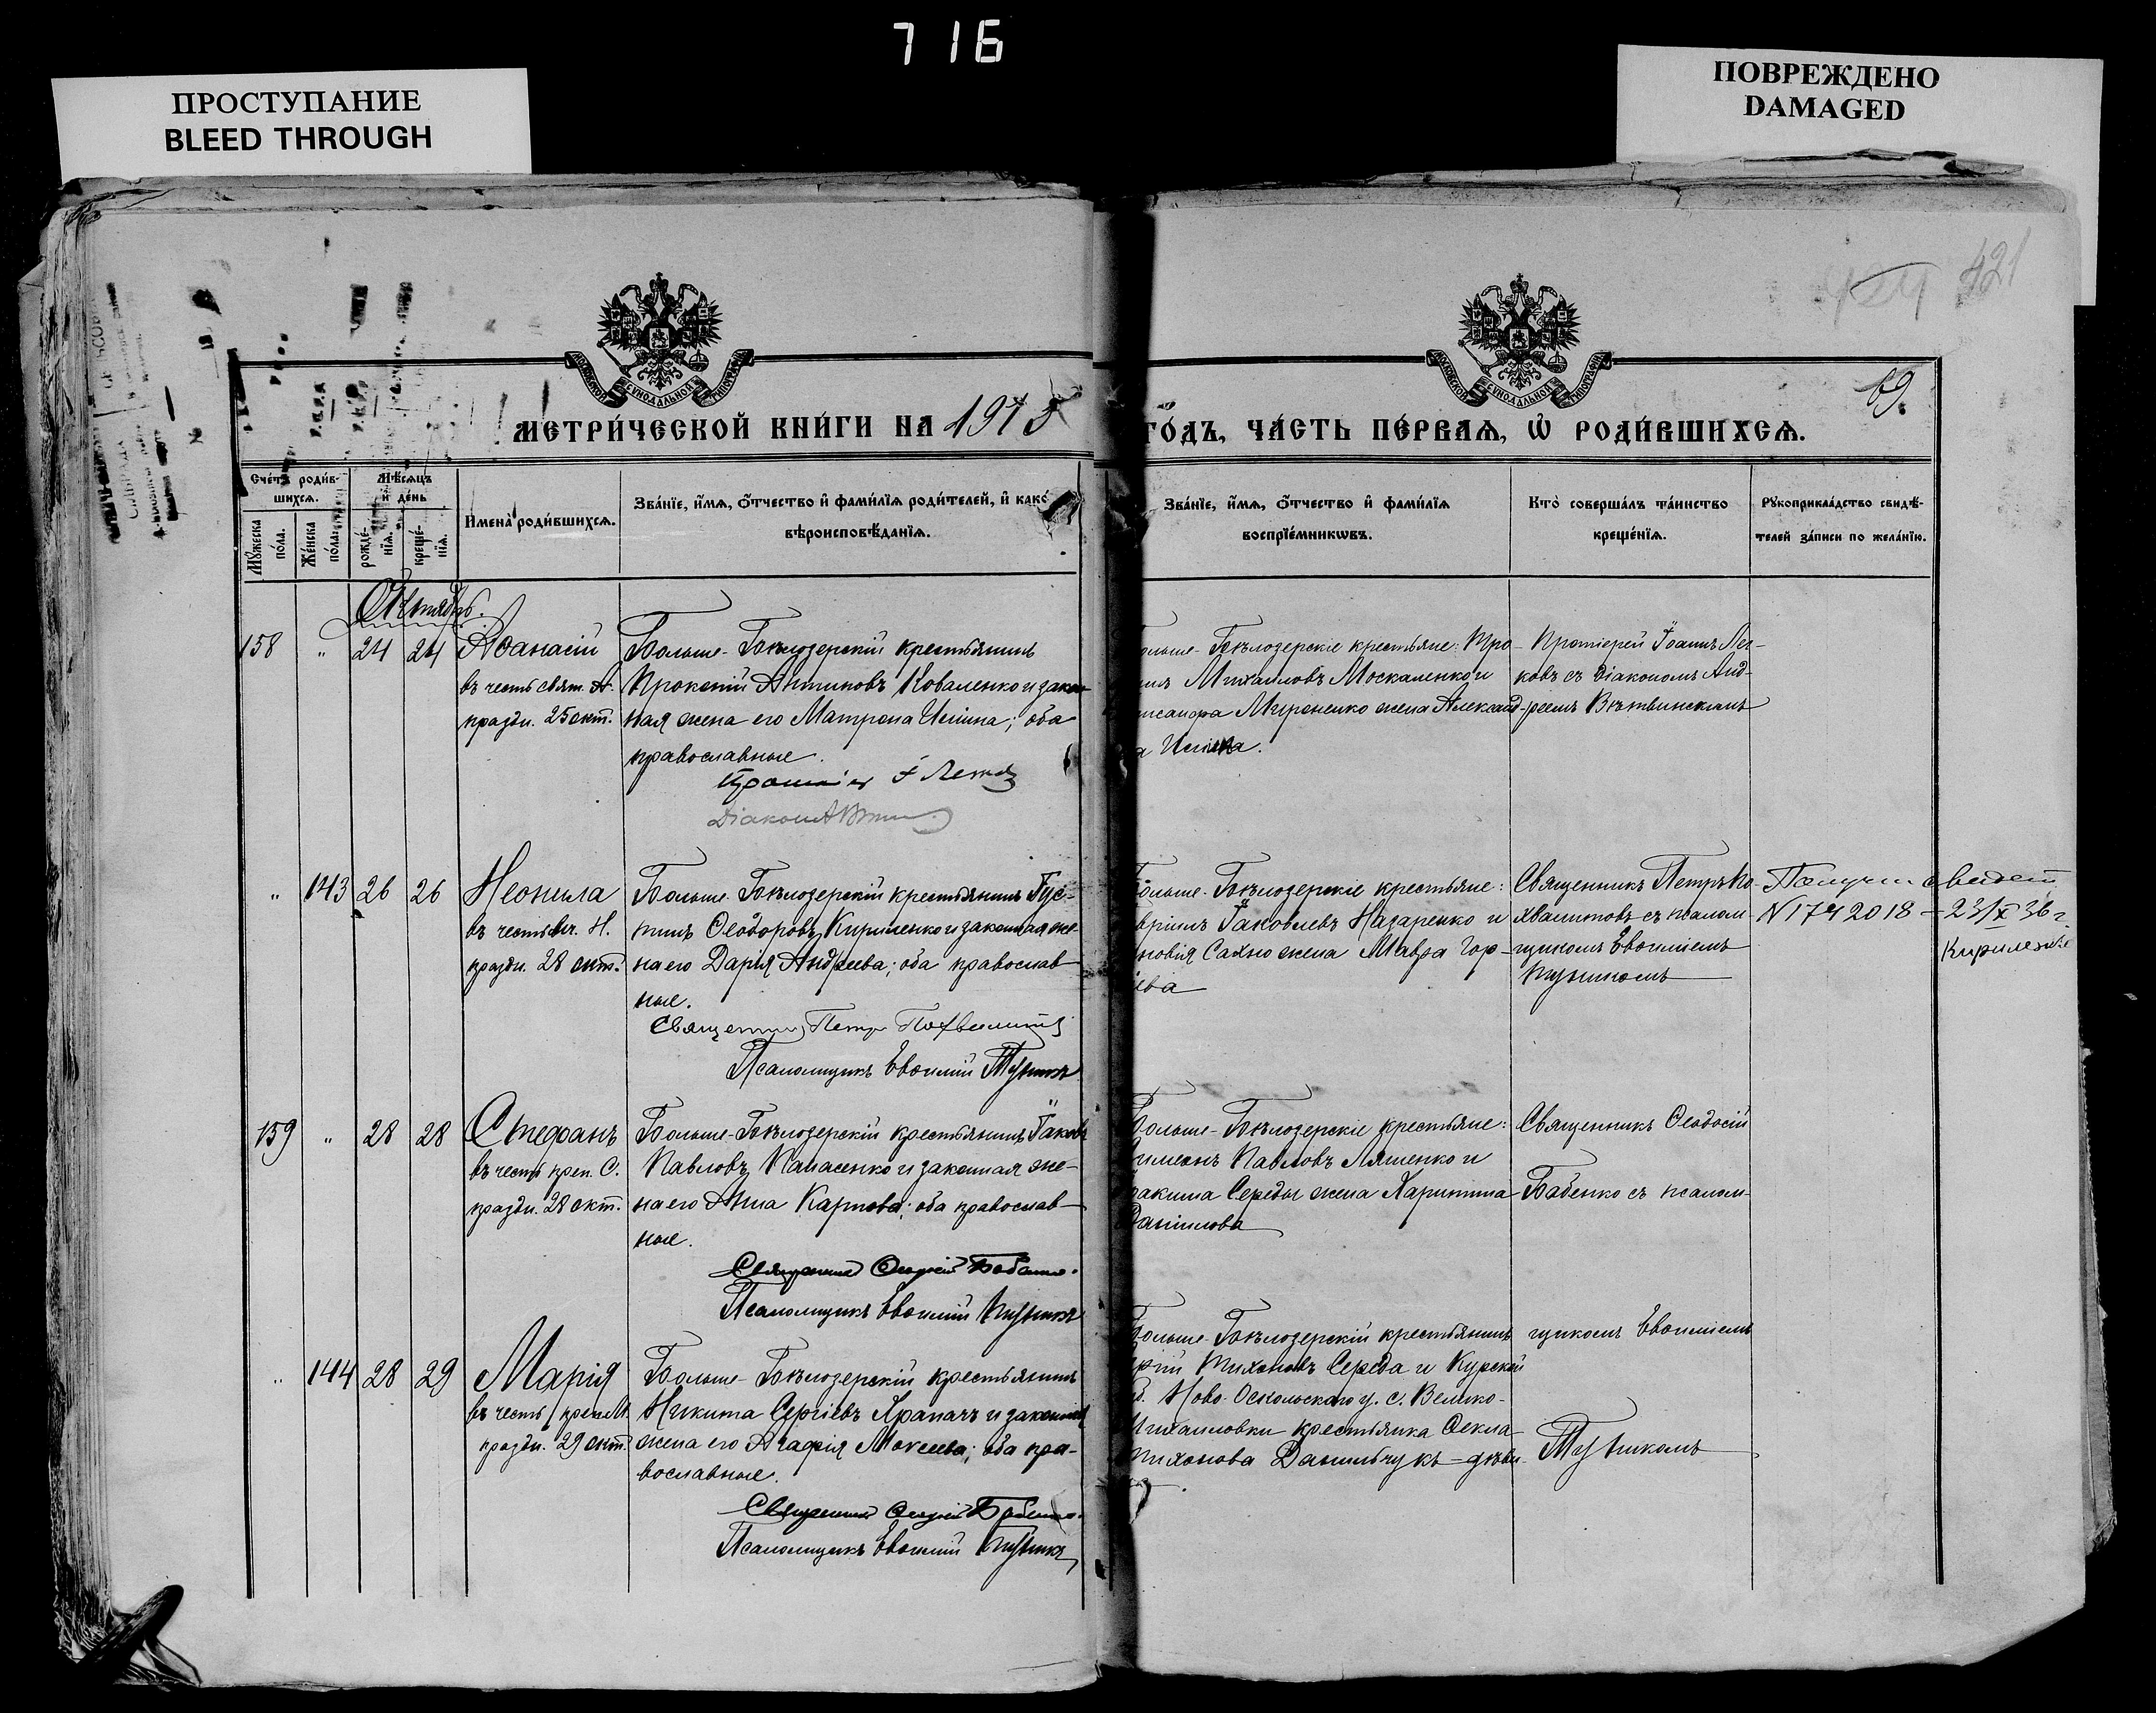 716
ПРОСТУПАНИЕ
BLEED THROUGH
ПОВРЕЖДЕНО
DAMAGED
421
69.
МЕТРИ́ЧЕСКОЙ КНИ́ГИ НА 1915
ГО́ДЪ, ЧА́СТЬ ПЕ́РВАѦ, Ѡ РОДИ́ВШИХСѦ.
Сче́тъ роди́в-
шихсѧ.
Мѣ́сѧцъ
и де́нь
Мꙋ́жеска
по́ла.
Же́нска
по́ла.
рожде́-
нїѧ.
креще́-
нїѧ.
Имена̀ роди́вшихсѧ.
Зва́нїе, и́мѧ, о́тчество и фами́лїѧ роди́телей, и како́
вѣроисповѣ́данїѧ.
Зва́нїе, и́мѧ, о́тчество и фами́лїѧ
воспрїе́мникѡвъ.
Кто̀ соверша́лъ та́инство
креще́нїѧ.
Рꙋкоприкла́дство свидѣ́-
телей за́писи по жела́нїю.
Октябрь.
158 " 24 24 Аѳанасій
въ честь свят. А.
праздн. 25 окт.
Больше-Бѣлозерскій крестьянинъ
Прокопій Антиповъ Коваленко и закон-
ная жена его Матрона Иліина; оба
православные.
Діаконъ
ольше-Бѣлозерскіе крестьяне: Тро-
имъ Михаиловъ Москаленко и
Мироненко жена Александ-
а Иліина.
Протоіерей Іоаннъ Лег-
ковъ съ діакономъ Анд-
реемъ Вѣтвинскимъ
" 143 26 26 Неонила
въ честь мч. Н.
праздн. 28 окт.
Больше-Бѣлозерскій крестьянинъ Гус-
тинъ Ѳеодоровъ Кириленко и законная же-
на его Дарія Андреева; оба православ-
ные.
Священникъ Петръ Похвалитовъ
Псаломщикъ Евѳимій
Больше-Бѣлозерскіе крестьяне:
вріилъ Іаковлевъ Назаренко и
новія Сахно жена Мавра Гор-
ева
Священникъ Петръ По-
хвалитовъ съ псалом-
щикомъ Евѳиміемъ
N 1742018 – 23/X 36 г
159 " 28 28 Стефанъ
въ честь преп. С.
праздн. 28 окт.
Больше-Бѣлозерскій крестьянинъ Іаковъ
Павловъ Панасенко и законная же-
на его Анна Карпова; оба православ-
ные.
Священникъ Ѳеодосій Бабенко.
Псаломщикъ Евѳимій
Больше-Бѣлозерскіе крестьяне:
имеонъ Павловъ Ляшенко и
оакима Середы жена Харитина
Даніилова
Священникъ Ѳеодосій
Бабенко съ псалом-
" 144 28 29 Марія
въ честь преп. М.
праздн. 29 окт.
Больше-Бѣлозерскій крестьянинъ
Никита Сергіевъ Храпачъ и законная
жена его Агафія Мокеева; оба пра-
вославные.
Священникъ Ѳеодосій Бабенко.
Псаломщикъ Евѳимій
Больше-Бѣлозерскій крестьянинъ
ргій Тихоновъ Середа и Курской
г. Ново-Оскольскаго у. с. Велико-
Михаиловки крестьянка Ѳекла
Тихонова Данильчукъ – дѣви-
ца
щикомъ Евѳиміемъ